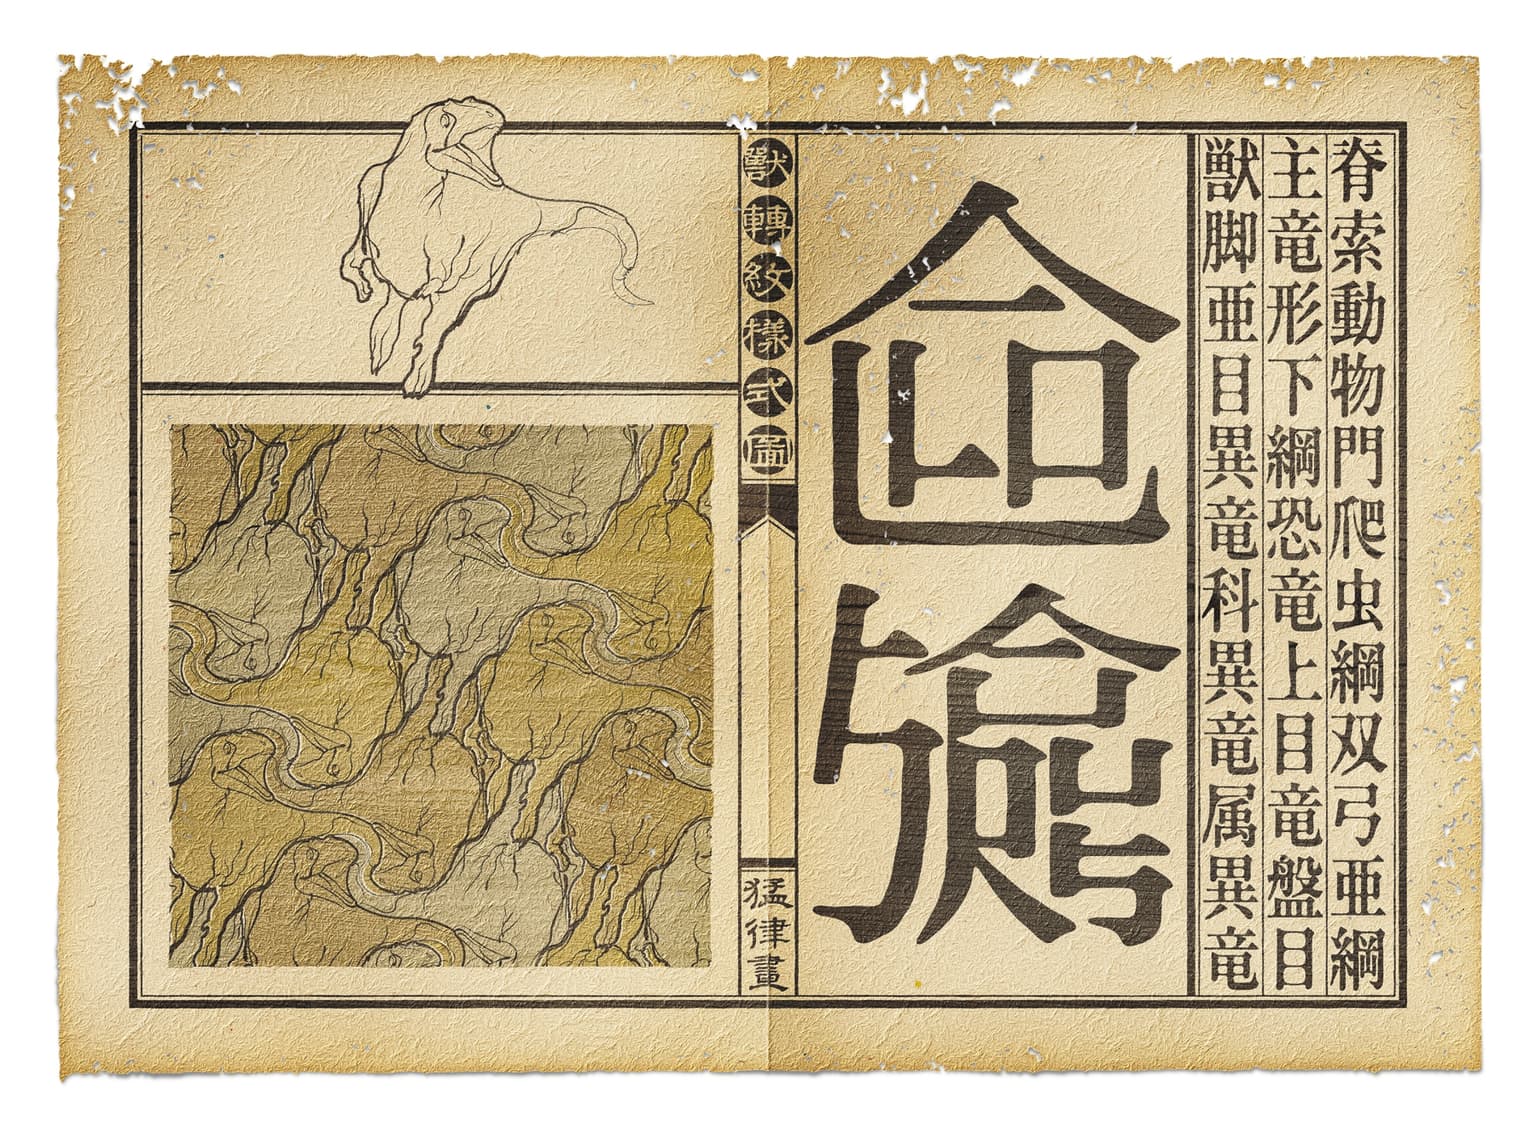 脊索動物門爬虫綱双弓亜綱
主竜形下綱恐竜上目竜盤目
獣脚亜目異竜科異竜属異竜
獸轉紋樣式圖
猛律畫